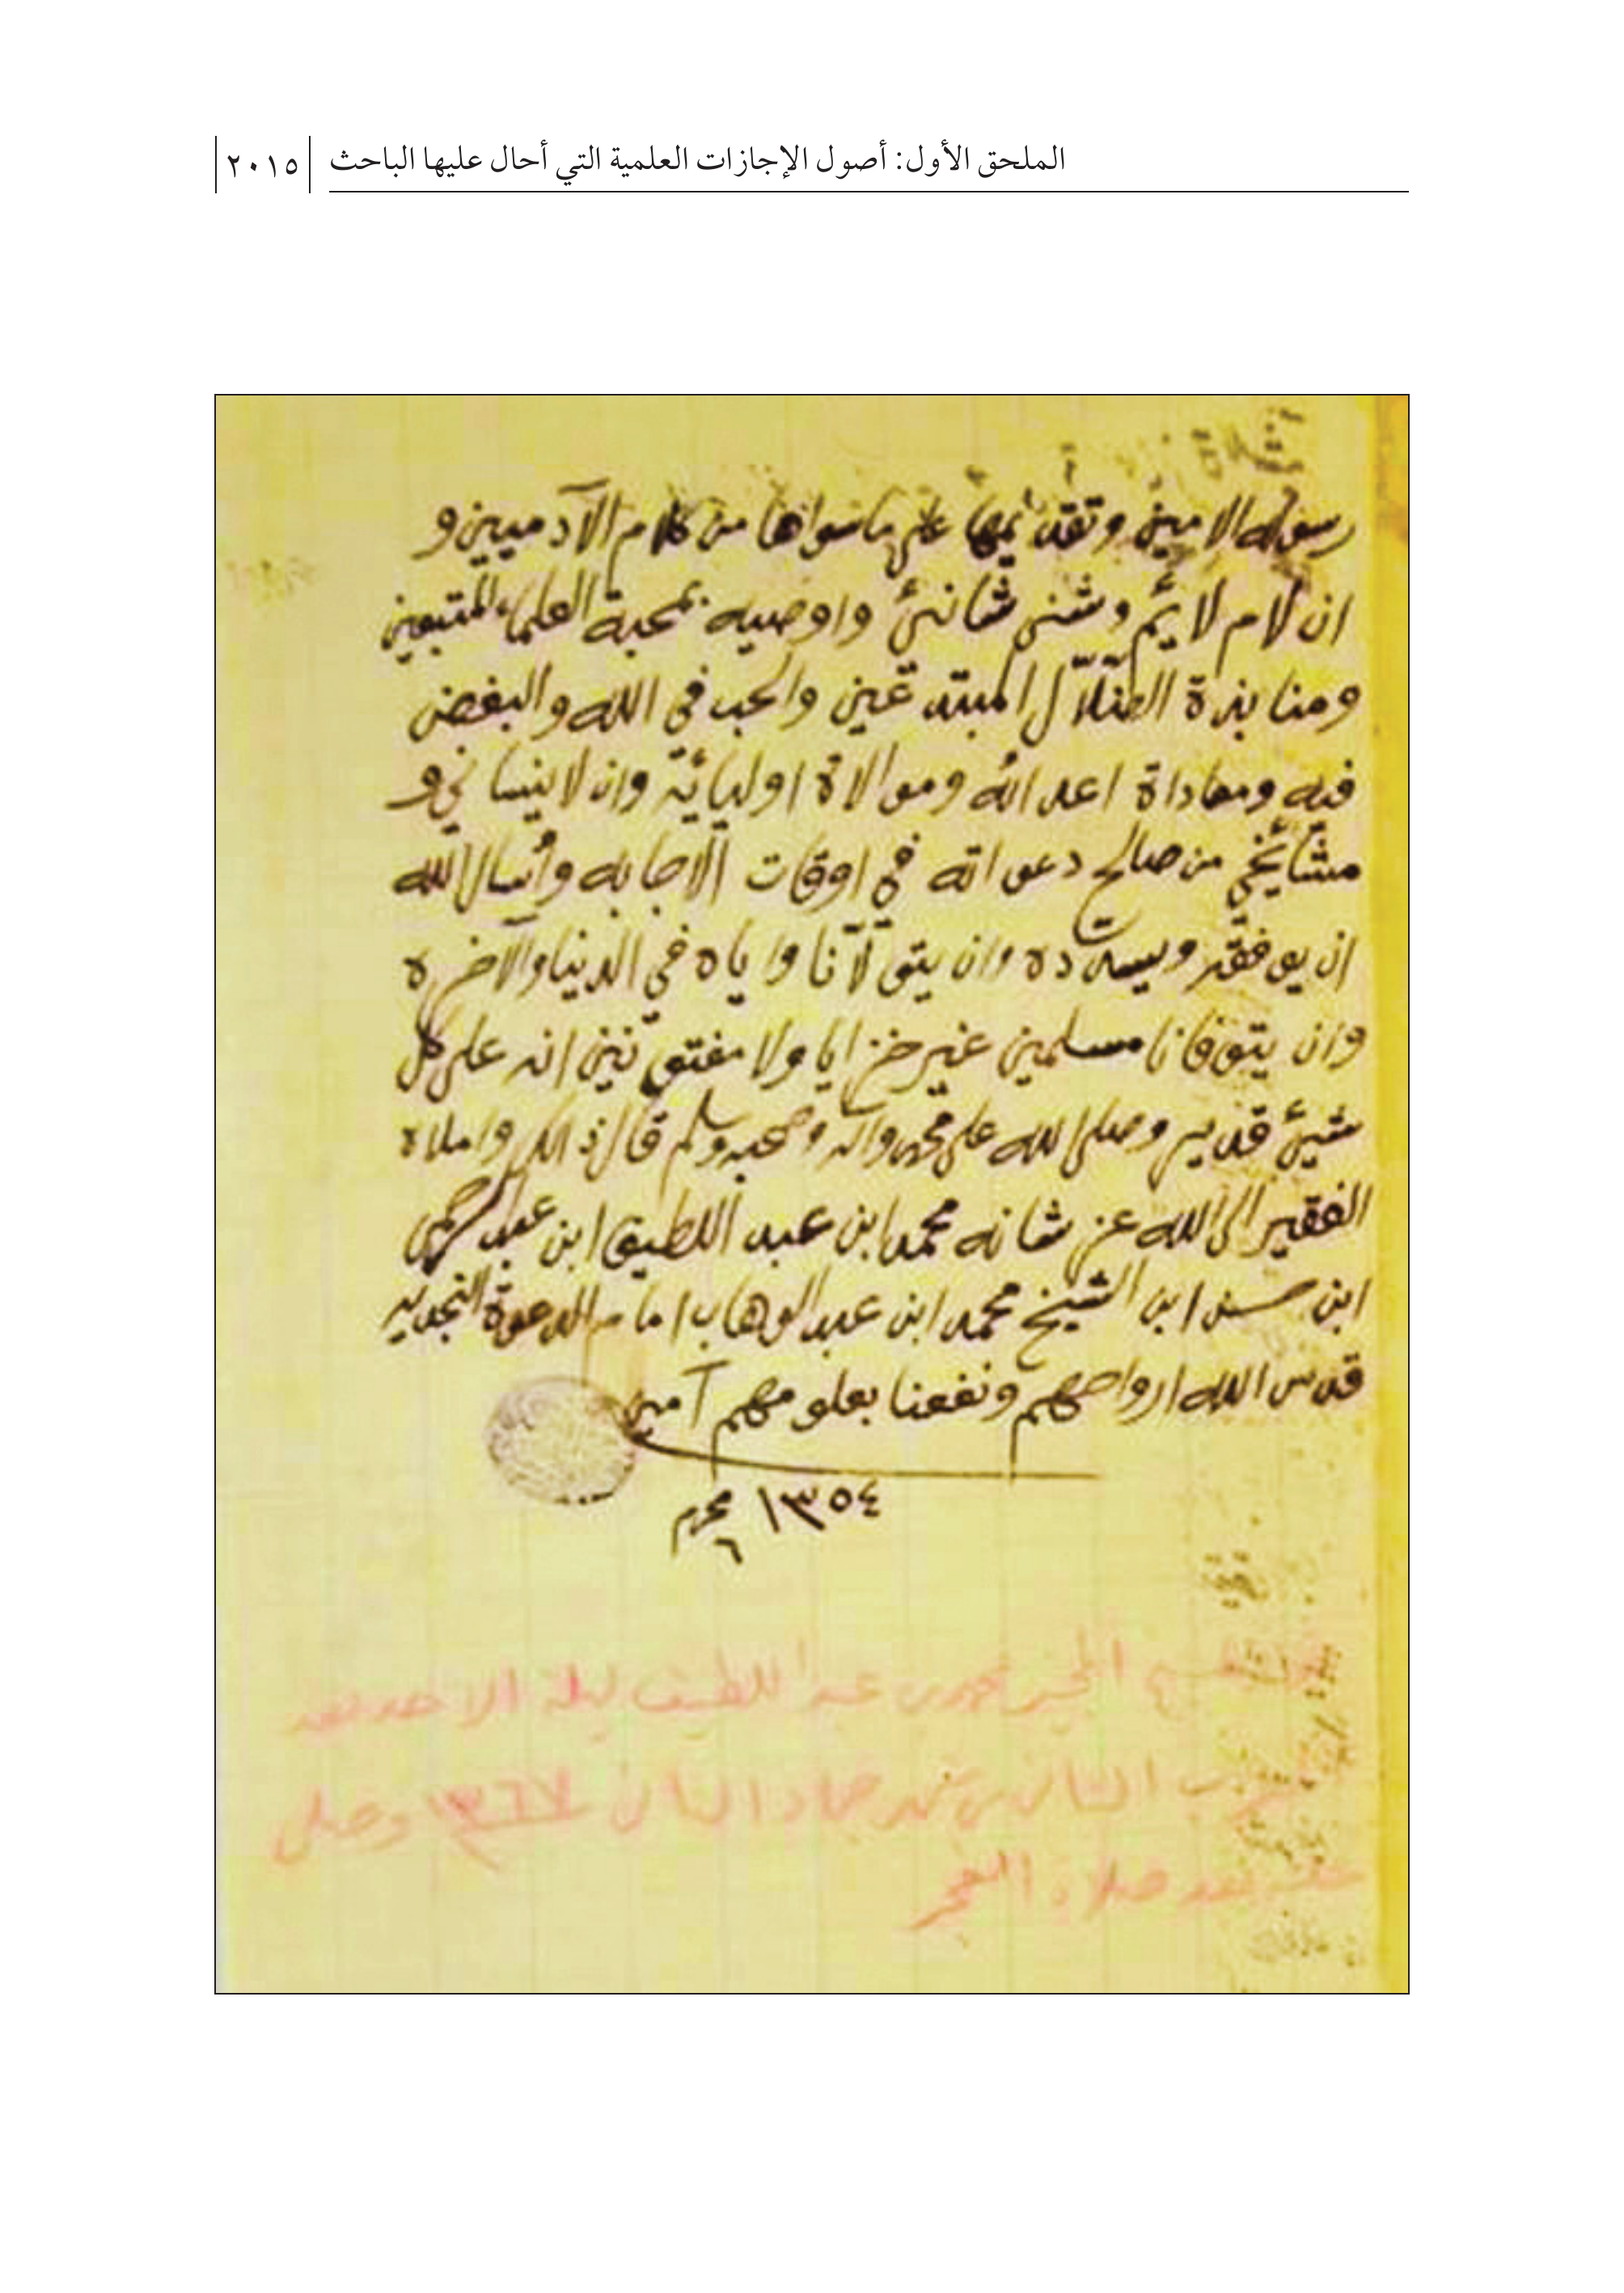 الملحق الأول: أصول الإجازات العلمية التي أحال عليها الباحث
٢٠١٥
رسوله الامين وتقديمها على ما سواها من كلام الآدميين و
ان لام لائم وشنئ شانئ واوصيه بمحبة العلماء المتبعين
ومنابذة الضلّال المبتدعين والحب في الله والبغض
فيه ومعاداة اعدائه وموالاة اوليائه وان لا ينساني و
مشائخي من صالح دعواته في اوقات الاجابه وأسال الله
ان يوفقه ويسدده وان يتولّانا واياه في الدنيا والآخره
وان يتوفانا مسلمين غير خزايا ولا مفتونين انه على كل
شيئ قدير وصلى الله على محمد وآله وصحبه وسلم قال ذالك واملاه
الفقير الى الله عز شانه محمد ابن عبد اللطيف ابن عبد الرحمن
ابن حسن ابن الشيخ محمد ابن عبد الوهاب امام الدعوة النجديه
قدس الله ارواحهم ونفعنا بعلومهم آمين
١٣٥٤ محرم
٦
المجيز محمد بن عبد اللطيف ليلة الاحد بعد
الثاني من شهر جماد الثاني ١٣٦٧ وصلي
بعد صلاة الفجر